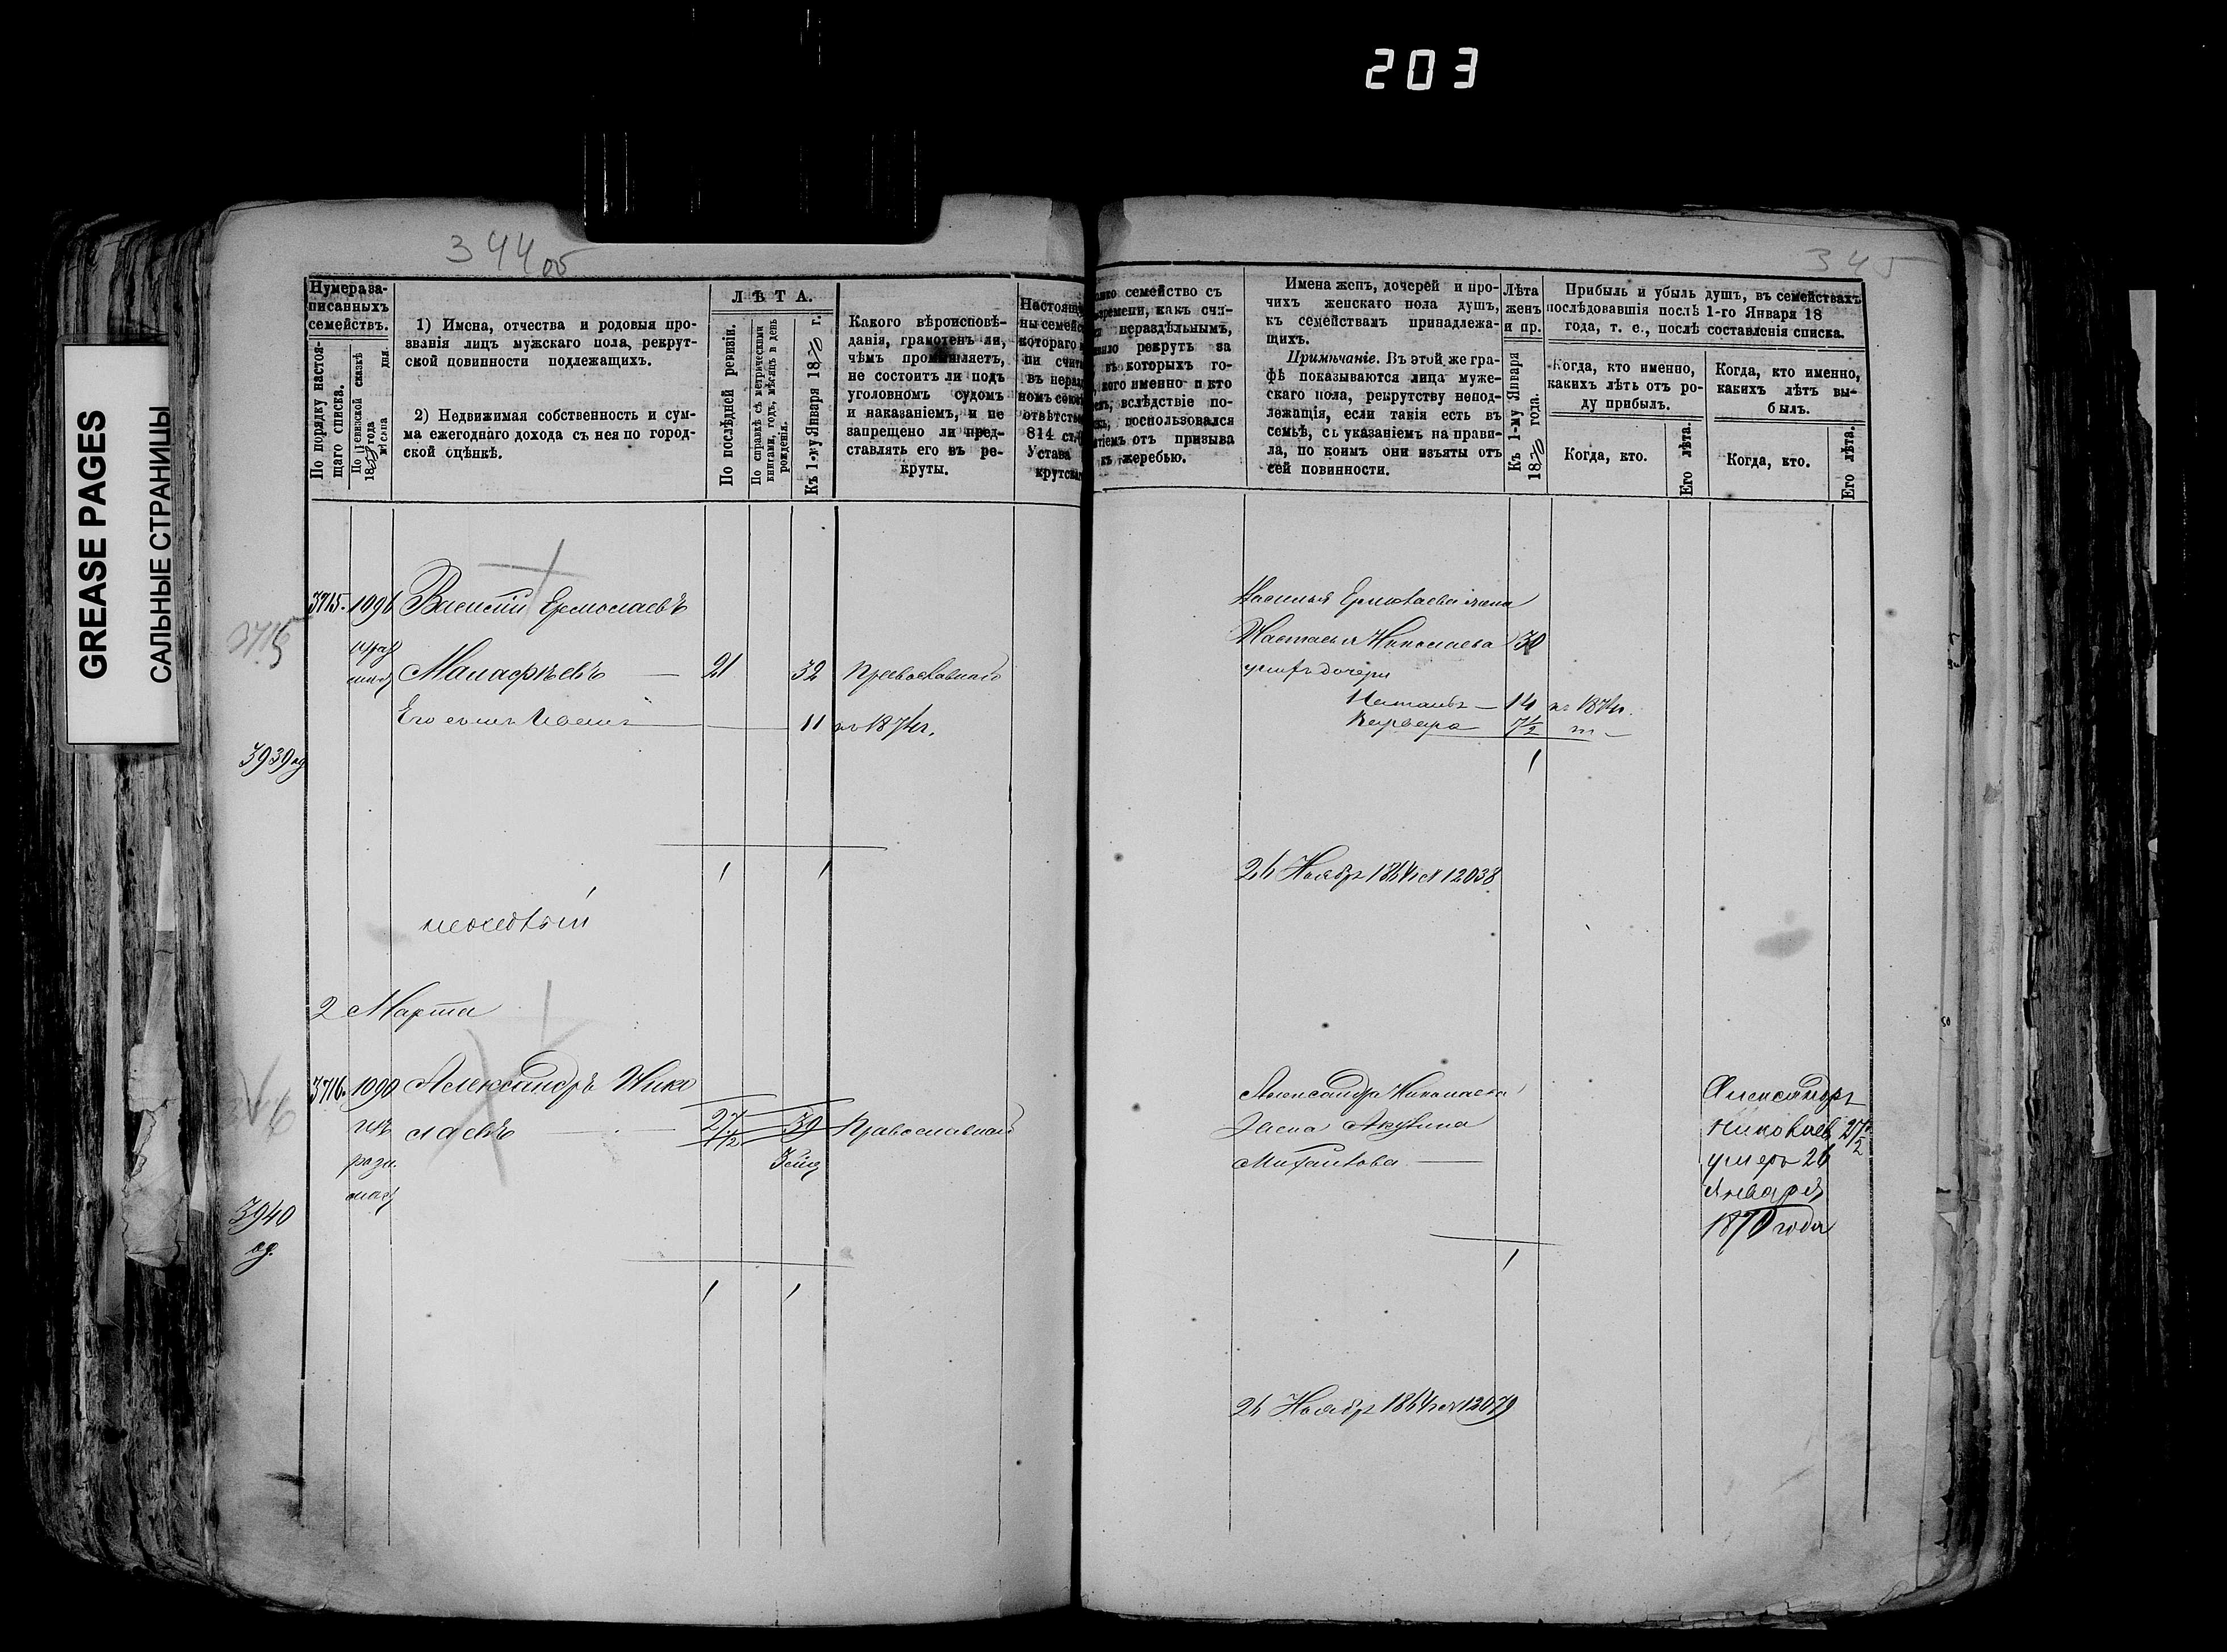 203
GREASE PAGES
САЛЬНЫЕ СТРАНИЦЫ
344 об
Нумера за-
писанныхъ
семействъ.
По порядку настоя-
щаго списка.
По ревизской сказкѣ
1858 года
мѣсяца дня.
1) Имена, отчества и родовыя про-
званія лицъ мужскаго пола, рекрут-
ской повинности подлежащихъ.
2) Недвижимая собственность и сум-
ма ежегоднаго дохода съ нея по город-
ской оцѣнкѣ.
ЛѢТА.
По послѣдней ревизіи.
По справкѣ съ метрическими
книгами, годъ, мѣсяцъ и день
рожденія.
Къ 1-му Января 1870 г.
Какого вѣроисповѣ-
данія, грамотенъ ли,
чѣмъ промышляетъ,
не состоитъ ли подъ
уголовномъ судомъ
и наказаніемъ, и не
запрещено ли пред-
ставлять его въ ре-
круты.
Настоящ
ны семейс
котораго
ли счит
въ нераз
номъ сою
отвѣтств
814 ст.
Устава
крутска
3715. 1096 Василій Ермолаевъ
3715
Малафѣевъ — 21 32 Православнаго
Его сынъ 11 по 1874 г.
3939 од
1 1
2 Марта
3716. 1090 Александръ Нико
лаевъ 27 1/2 39 Православнаго
3940
од.
1 1
345
семейство съ
времени, какъ счи-
нераздѣльнымъ,
рекрутъ за
въ которыхъ го-
кого именно и кто
вслѣдствіе по-
воспользовался
отъ призыва
къ жеребью.
Имена женъ, дочерей и про-
чихъ женскаго пола душъ,
къ семействамъ принадлежа-
щихъ.
Примѣчаніе. Въ этой же гра-
фѣ показываются лица муже-
скаго пола, рекрутству непод-
лежащія, если такія есть въ
семьѣ, съ указаніемъ на прави-
ла, по коимъ они изъяты отъ
сей повинности.
Лѣта
женъ
и пр.
Къ 1-му Января
1870 года.
Прибыль и убыль душъ, въ семействахъ
послѣдовавшія послѣ 1-го Января 18
года, т. е., послѣ составленія списка.
Когда, кто именно,
какихъ лѣтъ отъ ро-
ду прибылъ.
Когда, кто именно,
какихъ лѣтъ вы-
былъ.
Когда, кто.
Его лѣта.
Когда, кто.
Его лѣта.
Василья Ермолаева жена
Настасья Николаева 30
у нихъ дочери
14 по 1874 г.
Варвара 7 1/2
1
26 Ноябр 1864 г № 12038
Александра Николаева
жена Акулина
Михайлова —
Александръ
Николаев 27 1/2
умеръ 26
Января
1870 года
1
26 Ноябр 1864 г № 12079